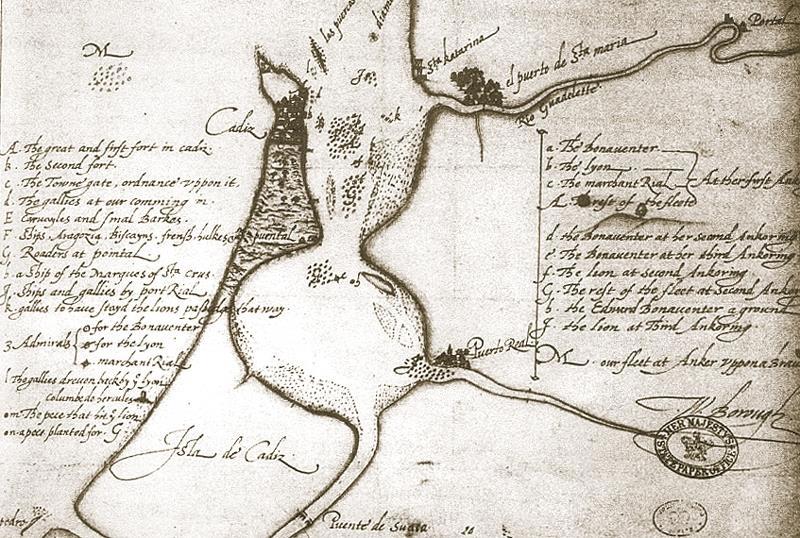 M
las puercas
diam
Sta katarina
el puerto de Sta maria
Rio Guadelette
Portal
Cadiz
A. The great and first fort in cadiz.
b. The Second fort.
c. The Towne gate, ordnance vppon it.
d. The gallies at our comming in.
E Caruayles and smal Barkes.
F Ships, Aragozia, Biscayns, frensh, hulkes &c
G. Roaders at pontal
h. a Ship of the Marques of Sta Crus.
J. Ships and gallies by port Rial
k. gallies to haue stoyd the lions that way.
3 Admirals
for the Bonaventer
for the Lyon
marchant Rial
l The gallies dreuen back by ye lyon
columbe de hercules
m The pece that hit ye lion
n a pece planted for. G
puental
a. The Bonaventer
b. The lyon
c. The marchant Rial
At ther first Ank
A. The rest of the fleete
d. the Bonaventer at her second Ankoring
e. The Bonaventer at her third Ankoring
f. The lion at second Ankoring
G. The rest of the fleet at Second Anko
h. the Edward Bonaventer a ground
J. the lion at Third Ankoring.
M. our fleet at Anker vppon a
Puerto Real
W Borough
HER MAJESTY'S STATE PAPER OFFICE
Isla de Cadiz
Puente de Suaza